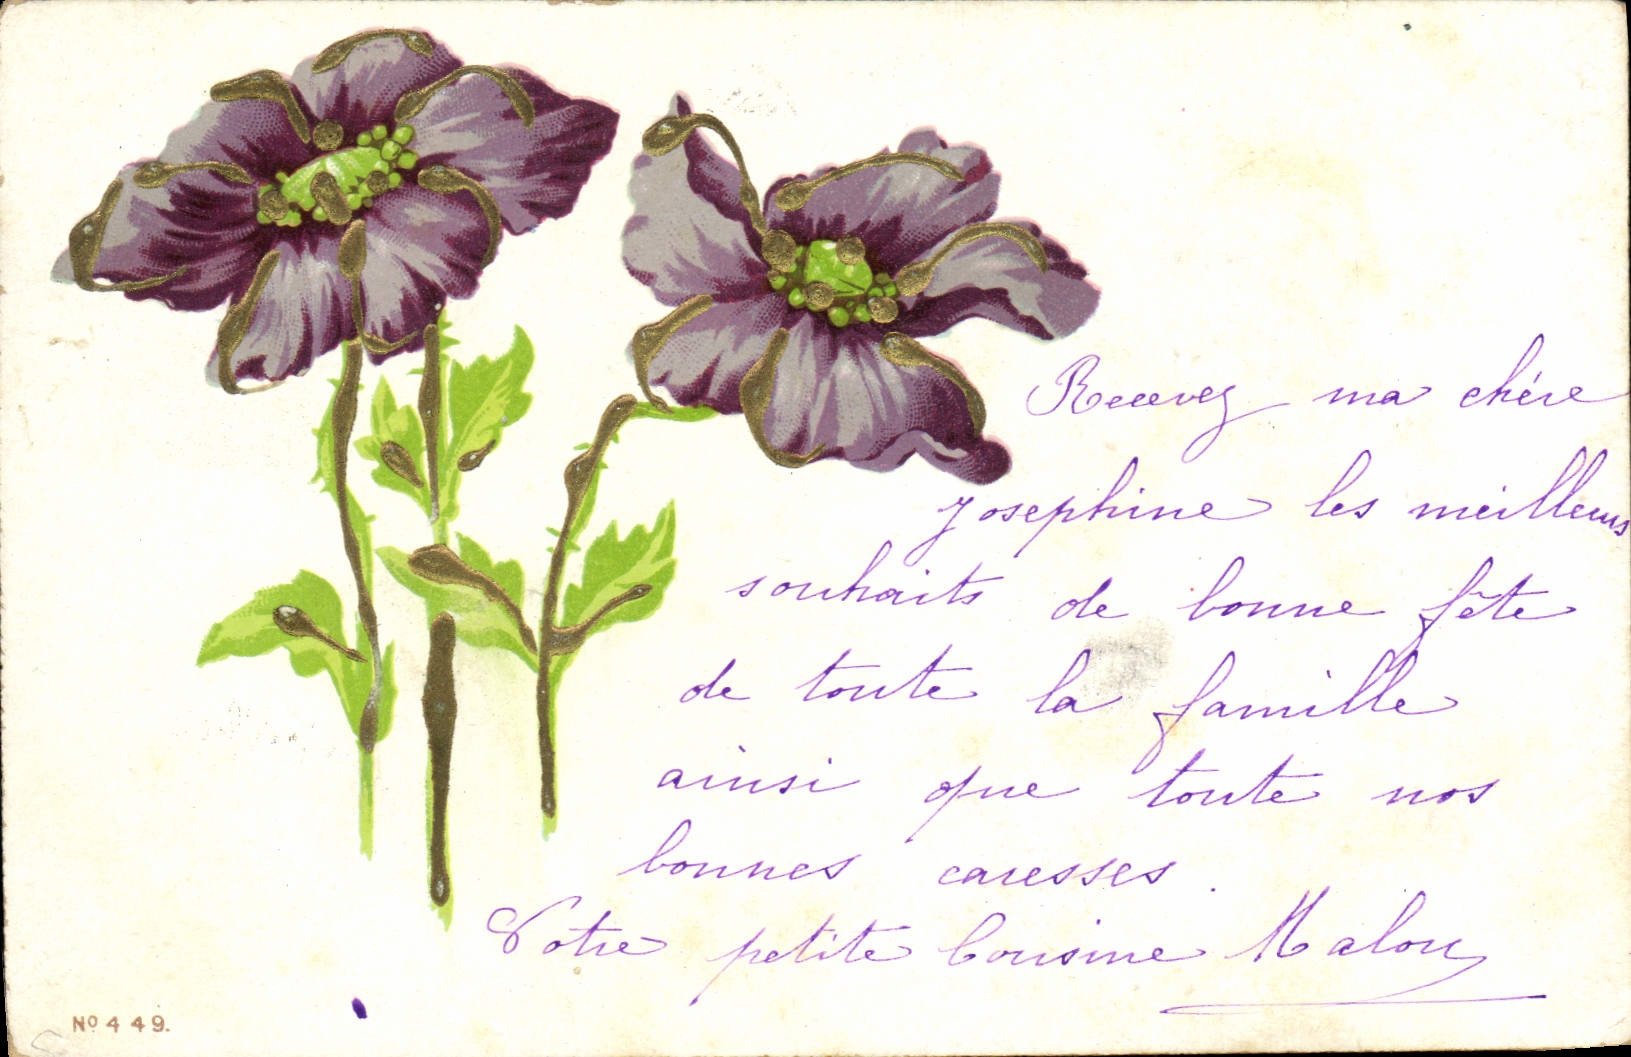 Recevez ma chére
Josephine les meilleurs
souhaits de bonne fête
de toute la famille
ainsi que toute nos
bonnes caresses.
Votre petite Cousine Malou
No 449.